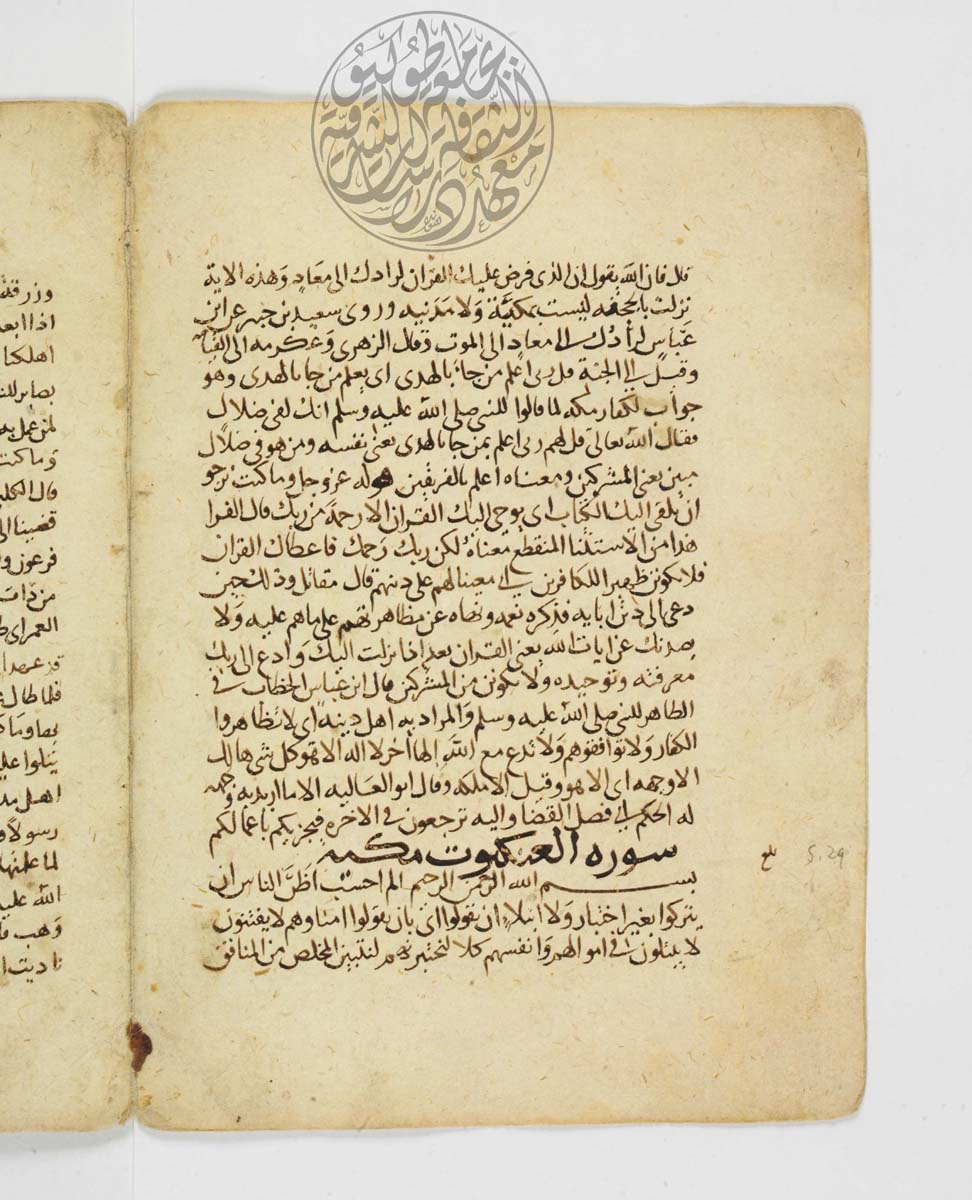 قال فان الله يقول ان الذى فرض عليك القران لرادك الى معاد وهذه الاية
نزلت بالجحفه ليست بمكية ولا مدنيه وروى سعيد بن جبير عن ابن
عباس لرادك الى معاد الى الموت وقال الزهرى وعكرمه الى القيامة
وقيل الى الجنة قل ربى اعلم من جاء بالهدى اى يعلم من جا بالهدى وهو
جواب لكفار مكه لما قالوا للنبى صلى الله عليه وسلم انك لفى ضلال
فقال الله تعالى قل لهم ربى اعلم بمن جا بالهدى يعنى نفسه ومن هو فى ضلال
مبين يعنى المشركين ومعناه اعلم بالفريقين قوله عز وجل وما كنت ترجو
ان يلقى اليك الكتاب اى يوحى اليك القران الا رحمة من ربك قال الفرا
هذا من الاستثنا المنقطع معناه لكن ربك رحمك فاعطاك القران
فلا تكونن ظهيرا للكافرين اى معينا لهم على دينهم قال مقاتل وذلك حين
دعى الى دين ابايه فذكره نعمه ونهاه عن مظاهرتهم على ما هم عليه ولا
يصدنك عن ايات الله يعنى القران بعد اذ انزلت اليك وادع الى ربك
معرفته وتوحيده ولا تكونن من المشركين قال ابن عباس الخطاب فى
الظاهر للنبى صلى الله عليه وسلم والمراد به اهل دينه اى لا تظاهروا
الكفار ولا توافقوهم ولا تدع مع الله الها اخر لا اله الا هو كل شى هالك
الا وجهه اى الا هو وقيل الا ملكه وقال ابو العاليه الا ما اريد به وجهه
له الحكم اى فصل القضا واليه ترجعون فى الاخره فيجزيكم باعمالكم
سورة العنكبوت مكية
بسم الله الرحمن الرحيم الم احسب اظن الناس ان
يتركوا بغير اختبار ولا ابتلاء ان يقولوا اى بان يقولوا امنا وهم لا يفتنون
لا يبتلون فى اموالهم وانفسهم كلا لنختبرنهم لنتبين المخلص من المنافق
بلغ
S. 29
وزرقته
اهلكنا
وما كنت
قال الكلبى
قضينا الى
فرعون و
من ذات
العمر اى
فلما طال
يتلوا عليهم
رسولا و
الله عليه